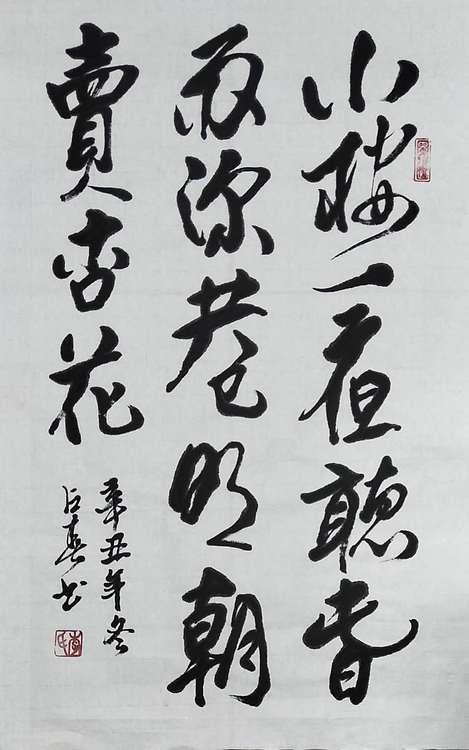 小樓一夜聽春
雨深巷明朝
賣杏花
辛丑年冬
春书